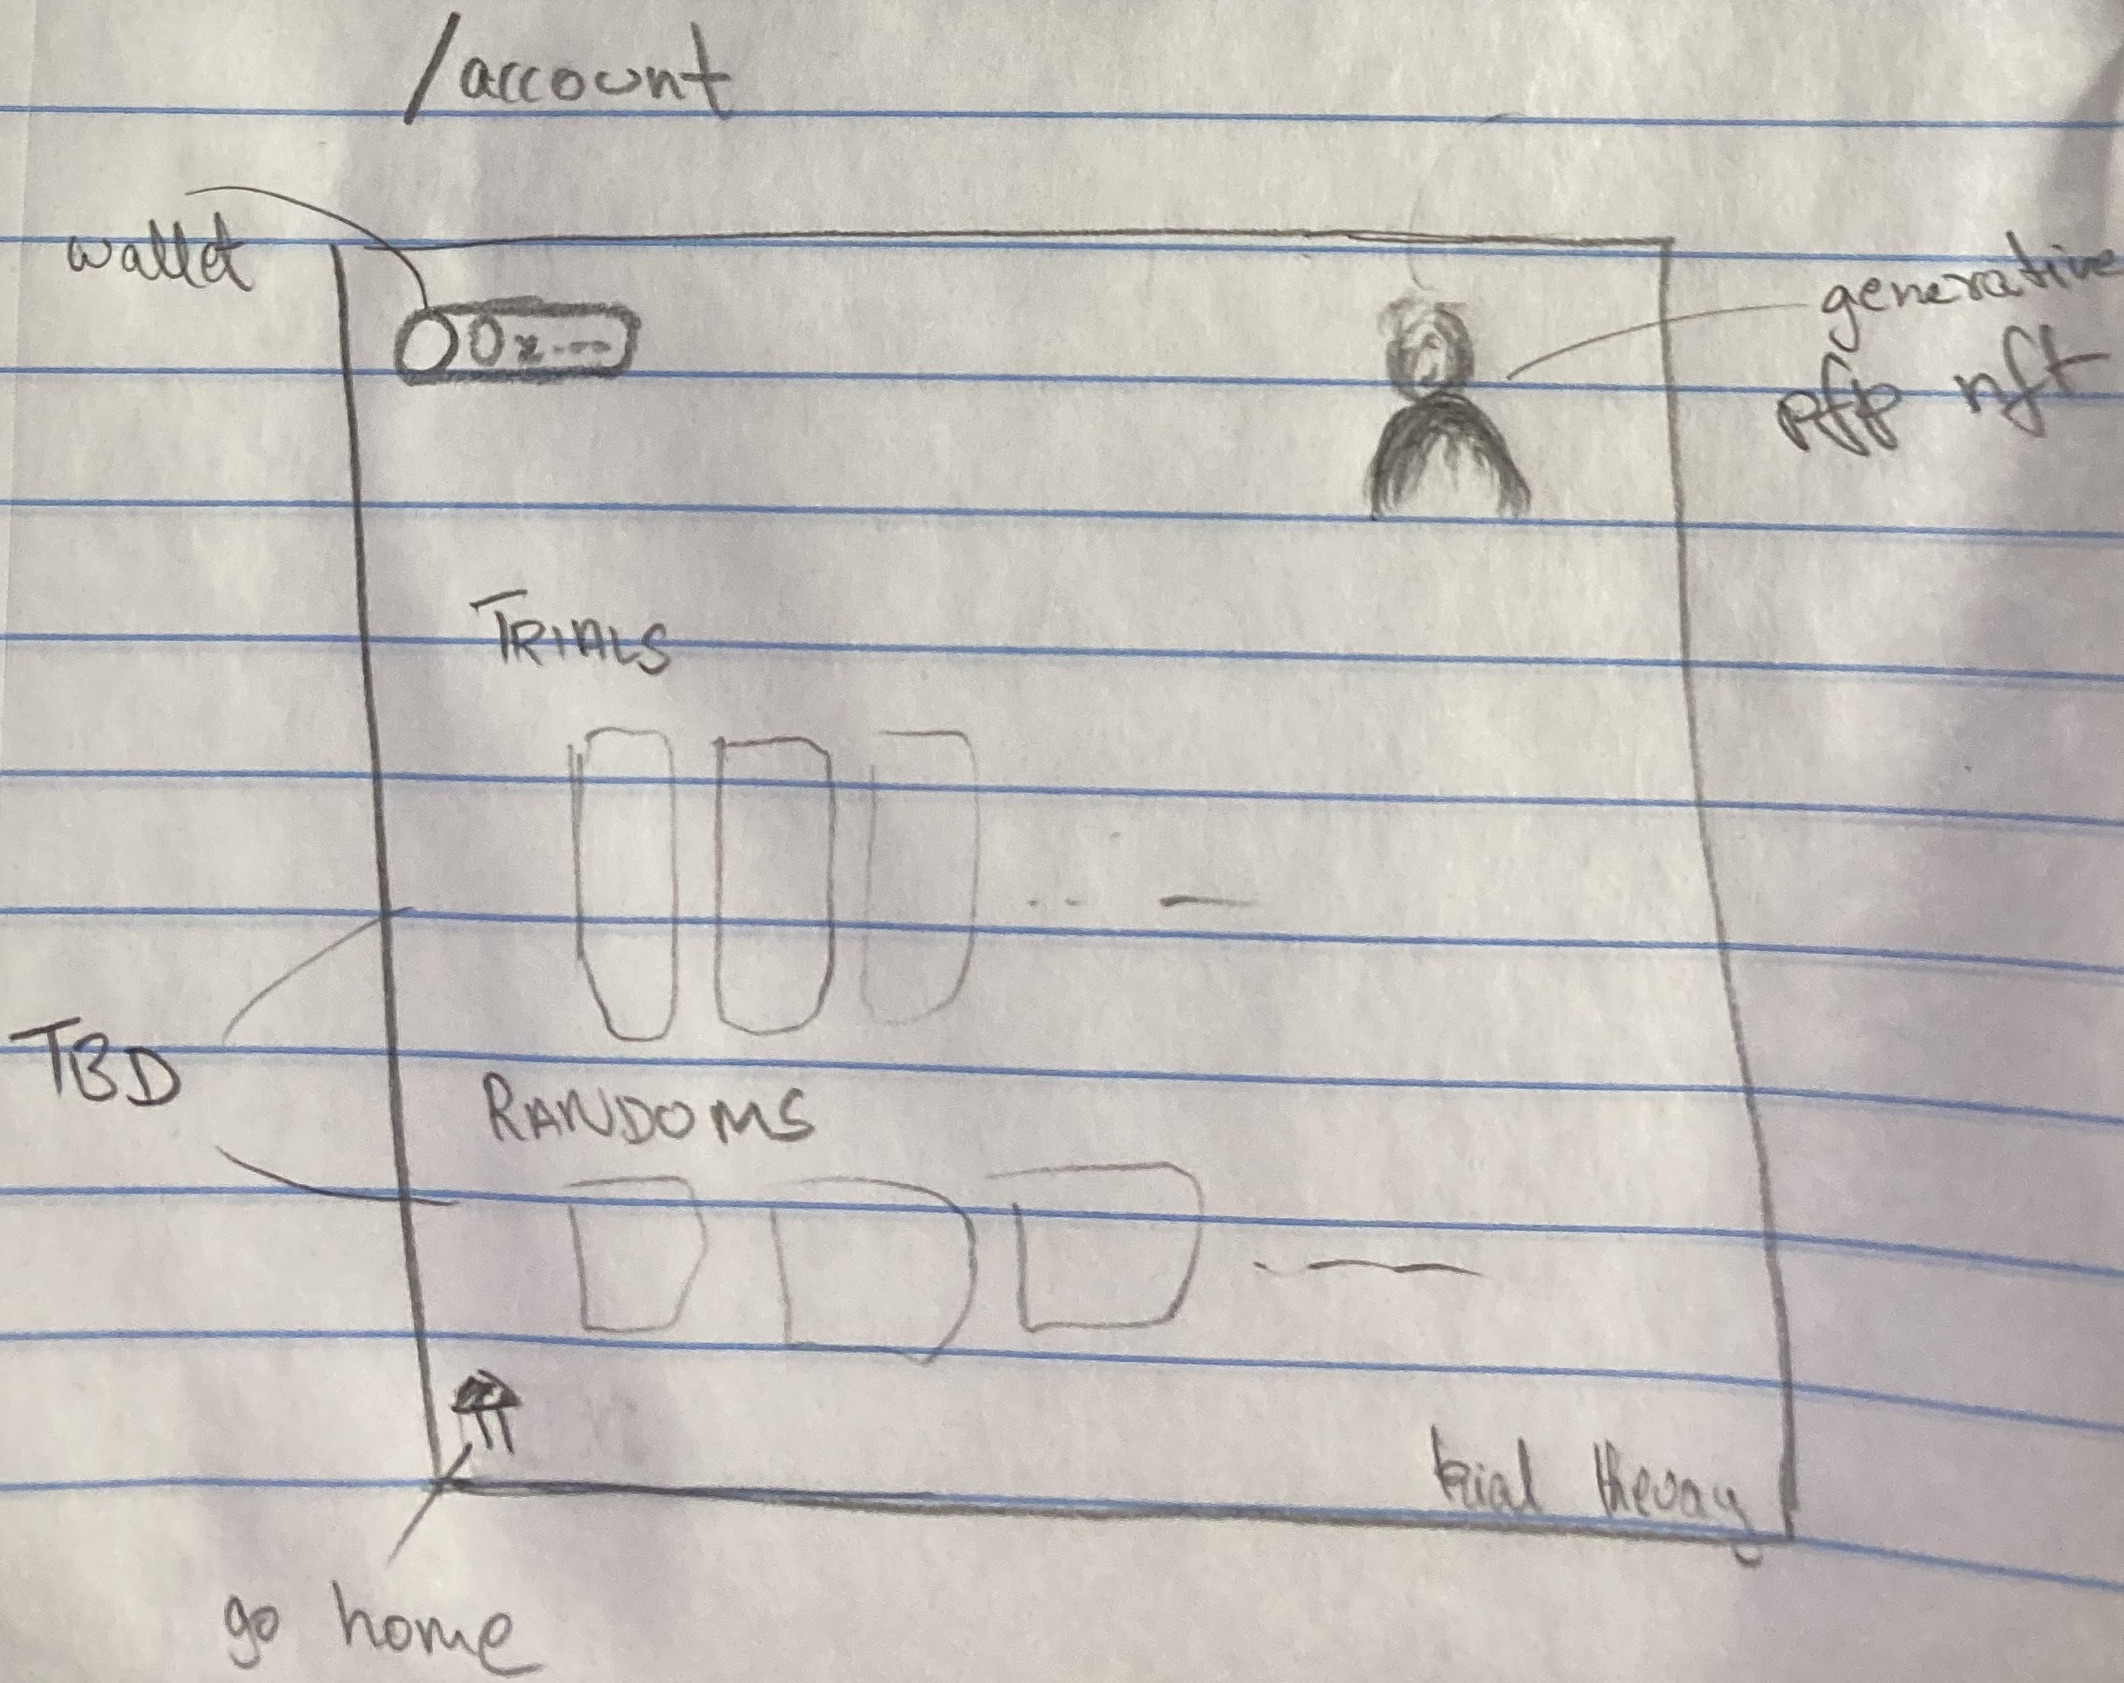 /account
wallet
0x...
generative
pfp nft
TRIALS
TBD
RANDOMS
trial theory
go home